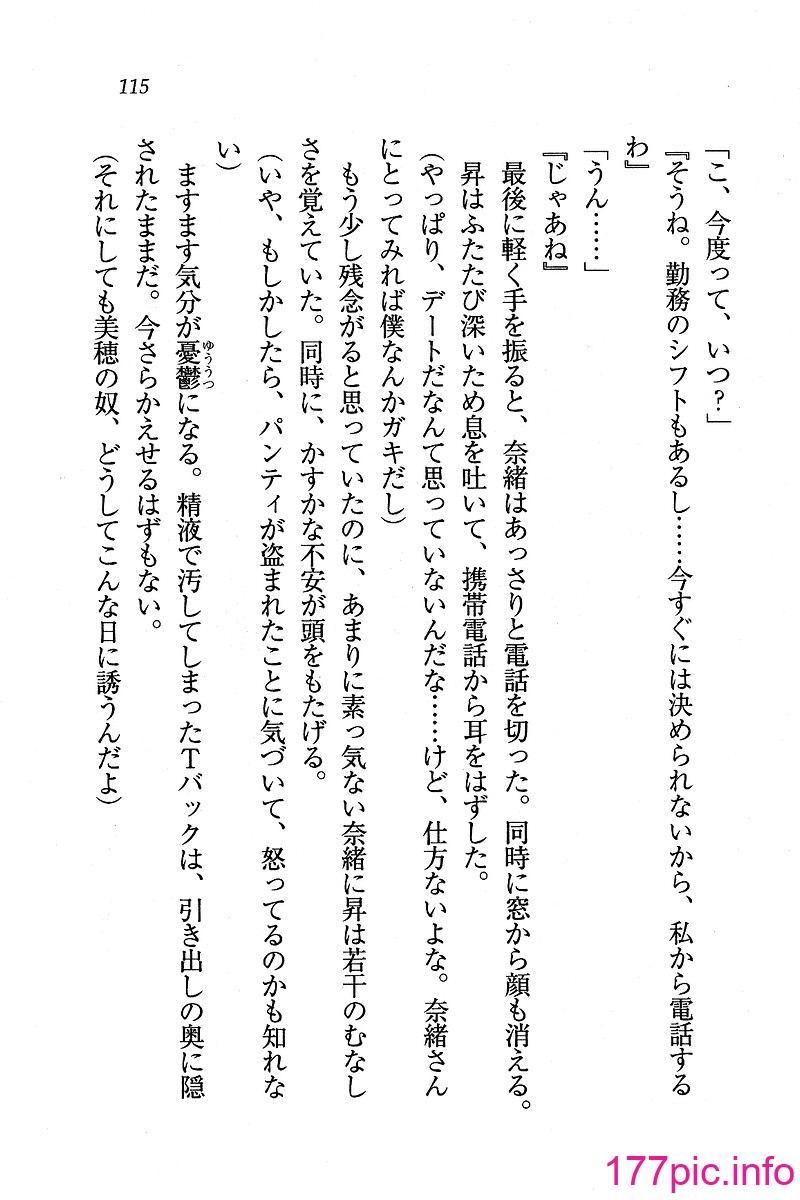 115
「こ、今度って、いつ？」
『そうね。勤務のシフトもあるし……今すぐには決められないから、私から電話する
わ』
「うん……」
『じゃあね』
最後に軽く手を振ると、奈緒はあっさりと電話を切った。同時に窓から顔も消える。
昇はふたたび深いため息を吐いて、携帯電話から耳をはずした。
（やっぱり、デートだなんて思っていないんだな……けど、仕方ないよな。奈緒さん
にとってみれば僕なんかガキだし）
もう少し残念がると思っていたのに、あまりに素っ気ない奈緒に昇は若干のむなし
さを覚えていた。同時に、かすかな不安が頭をもたげる。
（いや、もしかしたら、パンティが盗まれたことに気づいて、怒ってるのかも知れな
い）
ますます気分が憂鬱になる。精液で汚してしまったTバックは、引き出しの奥に隠
ゆううつ
されたままだ。今さらかえせるはずもない。
（それにしても美穂の奴、どうしてこんな日に誘うんだよ）
177pic.info